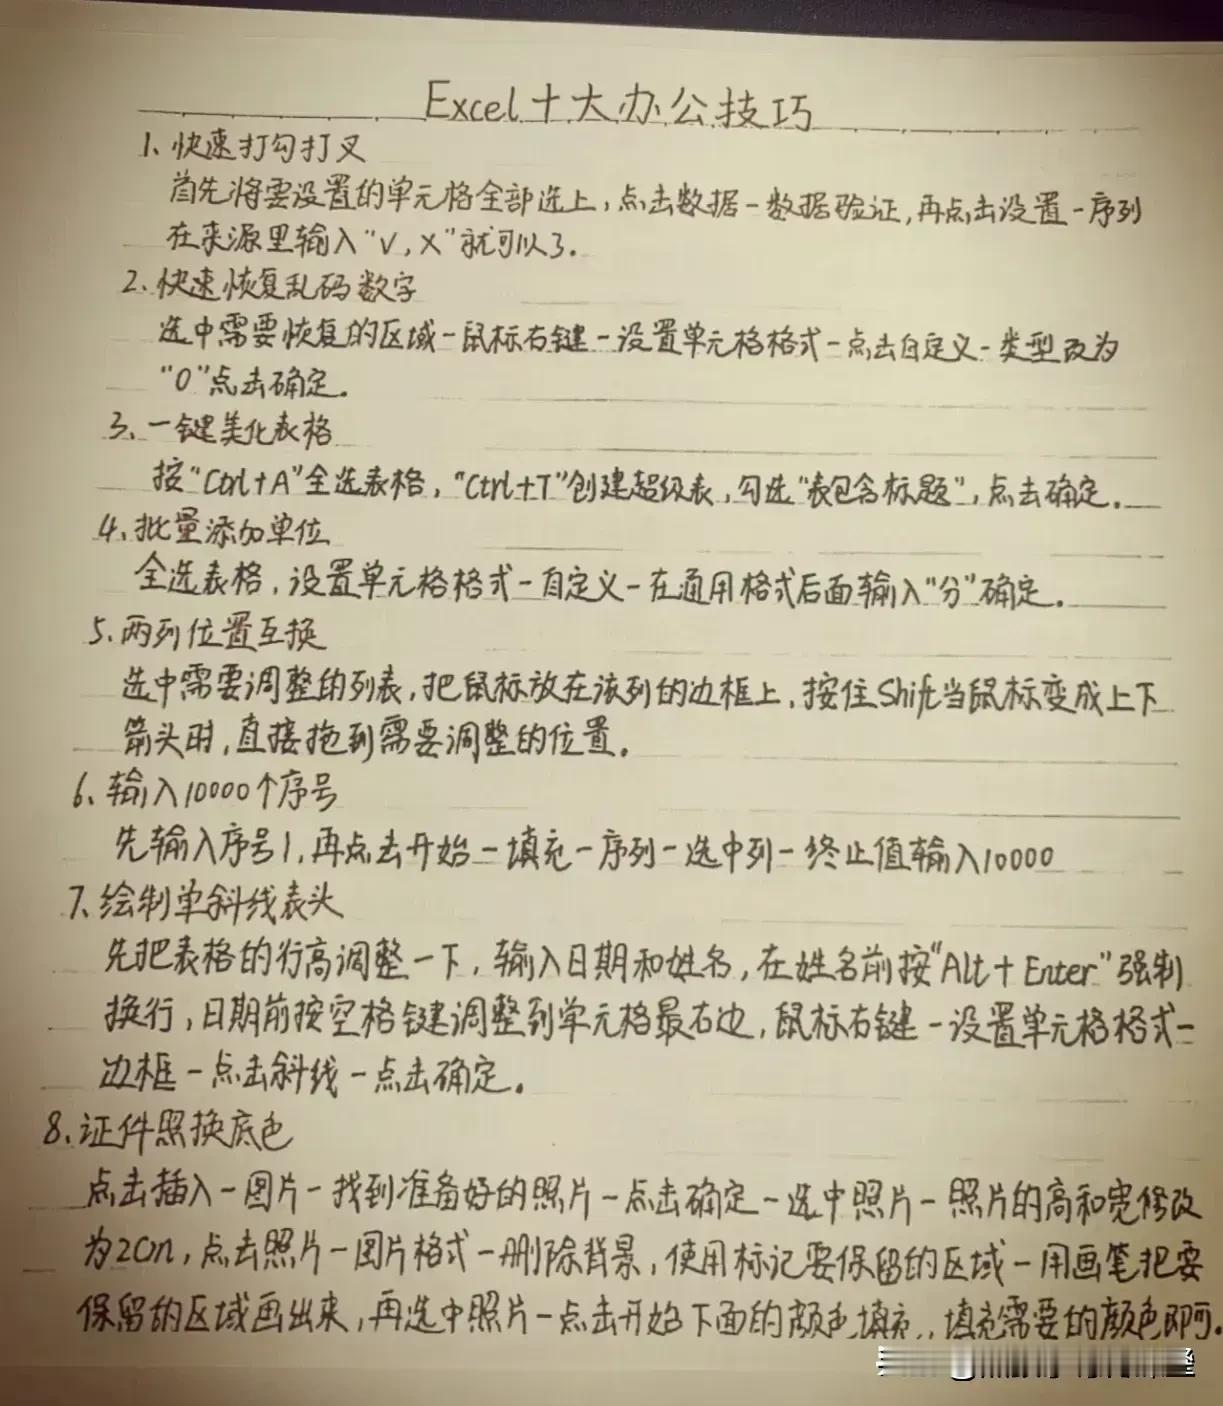 Excel十大办公技巧
1、快速打勾打叉
首先将要设置的单元格全部选上,点击数据-数据验证,再点击设置-序列
在来源里输入"√,X"就可以了.
2、快速恢复乱码数字
选中需要恢复的区域-鼠标右键-设置单元格格式-点击自定义-类型改为
"0"点击确定.
3、一键美化表格
按"Ctrl+A"全选表格,"Ctrl+T"创建超级表,勾选"表包含标题",点击确定.
4、批量添加单位
全选表格,设置单元格格式-自定义-在通用格式后面输入"分"确定.
5、两列位置互换
选中需要调整的列表,把鼠标放在该列的边框上,按住Shift当鼠标变成上下
箭头时,直接拖到需要调整的位置.
6、输入10000个序号
先输入序号1,再点击开始-填充-序列-选中列-终止值输入10000
7、绘制单斜线表头
先把表格的行高调整一下,输入日期和姓名,在姓名前按"Alt+Enter"强制
换行,日期前按空格键调整到单元格最右边,鼠标右键-设置单元格格式-
边框-点击斜线-点击确定.
8、证件照换底色
点击插入-图片-找到准备好的照片-点击确定-选中照片-照片的高和宽修改
为2cm,点击照片-图片格式-删除背景,使用标记要保留的区域-用画笔把要
保留的区域画出来,再选中照片-点击开始下面的颜色填充,填充需要的颜色即可.